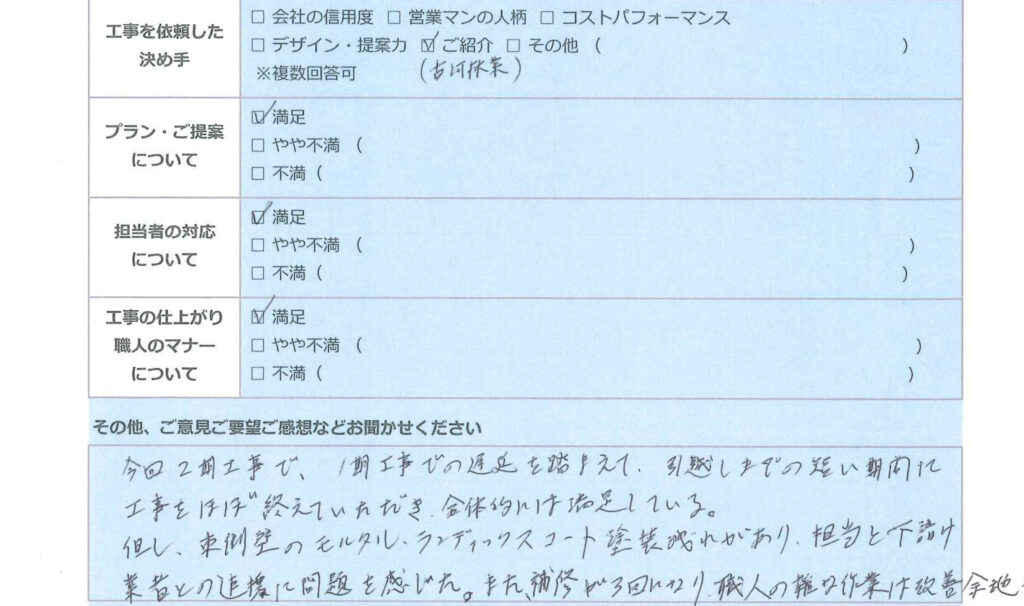 工事を依頼した
決め手
□ 会社の信用度 □ 営業マンの人柄 □ コストパフォーマンス
□ デザイン・提案力 ☑ ご紹介 □ その他 ( )
※複数回答可 (古河林業)
プラン・ご提案
について
☑ 満足
□ やや不満 ( )
□ 不満 ( )
担当者の対応
について
☑ 満足
□ やや不満 ( )
□ 不満 ( )
工事の仕上がり
職人のマナー
について
☑ 満足
□ やや不満 ( )
□ 不満 ( )
その他、ご意見ご要望ご感想などお聞かせください
今回2期工事で、1期工事での遅延を踏まえて、引越しまでの短い期間に
工事をほぼ終えていただき、全体的には満足している。
但し、東側壁のモルタル、ランディックスコート塗装残れがあり、担当と下請け
業者との連携に問題を感じた。また、補修が3回になり、職人の雑な作業は改善余地